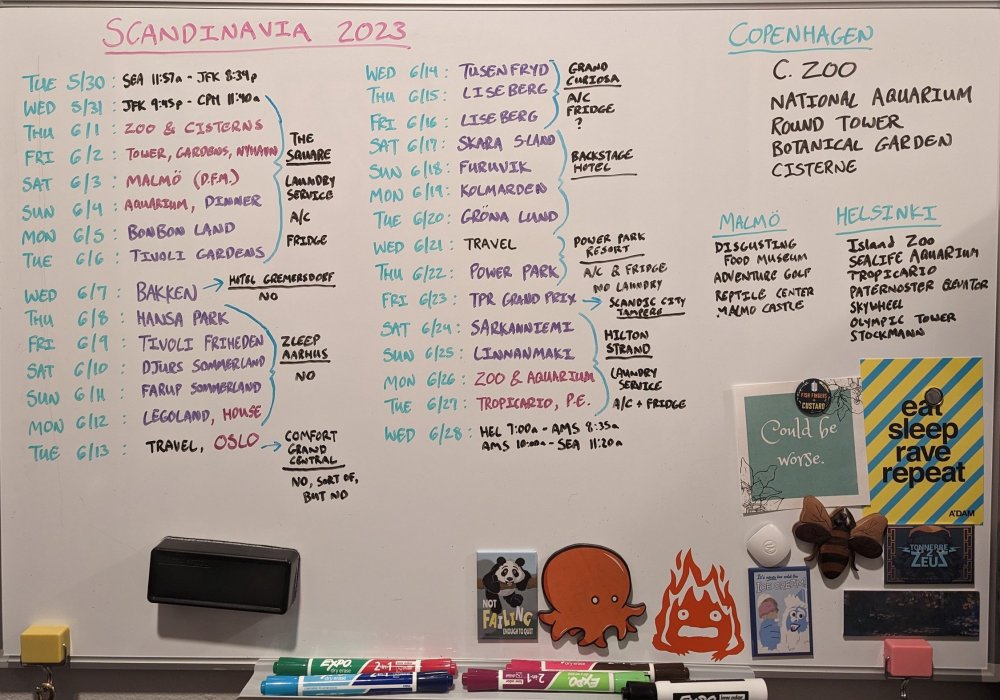 SCANDINAVIA 2023
TUE 5/30: SEA 11:57a - JFK 8:34p
WED 5/31: JFK 9:45p - CPH 11:40a
THU 6/1: ZOO & CISTERNS
FRI 6/2: TOWER, GARDENS, NYHAVN
SAT 6/3: MALMÖ (D.F.M.)
SUN 6/4: AQUARIUM, DINNER
MON 6/5: BONBON LAND
TUE 6/6: TIVOLI GARDENS
THE
SQUARE
LAUNDRY
SERVICE
A/C
FRIDGE
WED 6/7: BAKKEN → HOTEL GREMERSDORF
NO
THU 6/8: HANSA PARK
FRI 6/9: TIVOLI FRIHEDEN
SAT 6/10: DJURS SOMMERLAND
SUN 6/11: FARUP SOMMERLAND
MON 6/12: LEGOLAND, HOUSE
ZLEEP
AARHUS
NO
TUE 6/13: TRAVEL, OSLO → COMFORT
GRAND
CENTRAL
NO, SORT OF,
BUT NO
WED 6/14: TUSENFRYD
THU 6/15: LISEBERG
FRI 6/16: LISEBERG
GRAND
CURIOSA
A/C
FRIDGE
?
SAT 6/17: SKARA S-LAND
SUN 6/18: FURUVIK
MON 6/19: KOLMARDEN
TUE 6/20: GRÖNA LUND
BACKSTAGE
HOTEL
WED 6/21: TRAVEL
THU 6/22: POWER PARK
POWER PARK
RESORT
A/C & FRIDGE
NO LAUNDRY
FRI 6/23: TPR GRAND PRIX → SCANDIC CITY
TAMPERE
SAT 6/24: SÄRKÄNNIEMI
SUN 6/25: LINNANMAKI
MON 6/26: ZOO & AQUARIUM
TUE 6/27: TROPICARIO, P.E.
HILTON
STRAND
LAUNDRY
SERVICE
A/C + FRIDGE
WED 6/28: HEL 7:00a - AMS 8:35a
AMS 10:00a - SEA 11:20a
COPENHAGEN
C. ZOO
NATIONAL AQUARIUM
ROUND TOWER
BOTANICAL GARDEN
CISTERNE
MALMÖ
DISGUSTING
FOOD MUSEUM
ADVENTURE GOLF
REPTILE CENTER
MALMO CASTLE
HELSINKI
Island Zoo
SEALIFE AQUARIUM
TROPICARIO
PATERNOSTER ELEVATOR
SKYWHEEL
OLYMPIC TOWER
STOCKMANN
FISH FINGERS
&
CUSTARD
Could be
worse.
eat
sleep
rave
repeat
A'DAM
TONNERRE
2
ZEUS
It's never too cold for
ICE CREAM!
NOT
FAILING
ENOUGH TO QUIT
EXPO 2-in-1
dry erase
2-in-1 EXPO
dry erase
EXPO